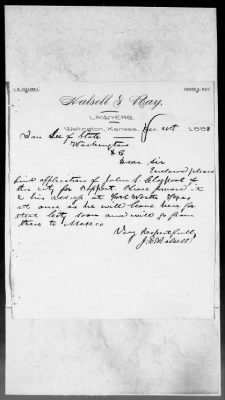 Halsell & Ray,
LAWYERS.
Wellington, Kansas, Dec 21st 188
Hon Sec of State
Washington
D C
Dear Sir
Enclosed please
find application of John S. Claypool of
this city for Passport. Please forward it
to his address at Fort Worth Texas
at once as he will leave here for
that city soon and will go from
there to Mexico
Very Respectfully
Halsell